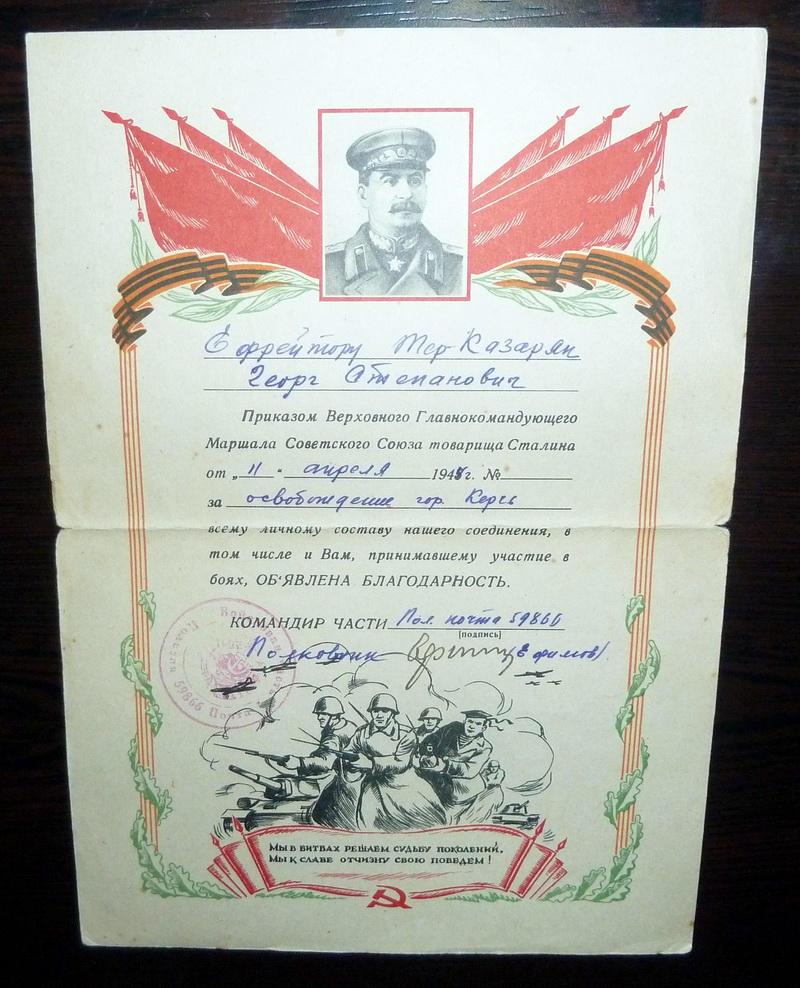 Ефрейтору Тер-Казарян
Георг Степанович
Приказом Верховного Главнокомандующего
Маршала Советского Союза товарища Сталина
от „ 11 “ апреля 1944г. №
за освобождение гор. Керчь
всему личному составу нашего соединения, в
том числе и Вам, принимавшему участие в
боях, ОБ'ЯВЛЕНА БЛАГОДАРНОСТЬ.
КОМАНДИР ЧАСТИ Пол. почта 59866
[подпись]
Полковник (Ефимов).
59866 Почта
Мы в битвах решаем судьбу поколений,
Мы к славе отчизну свою поведем!